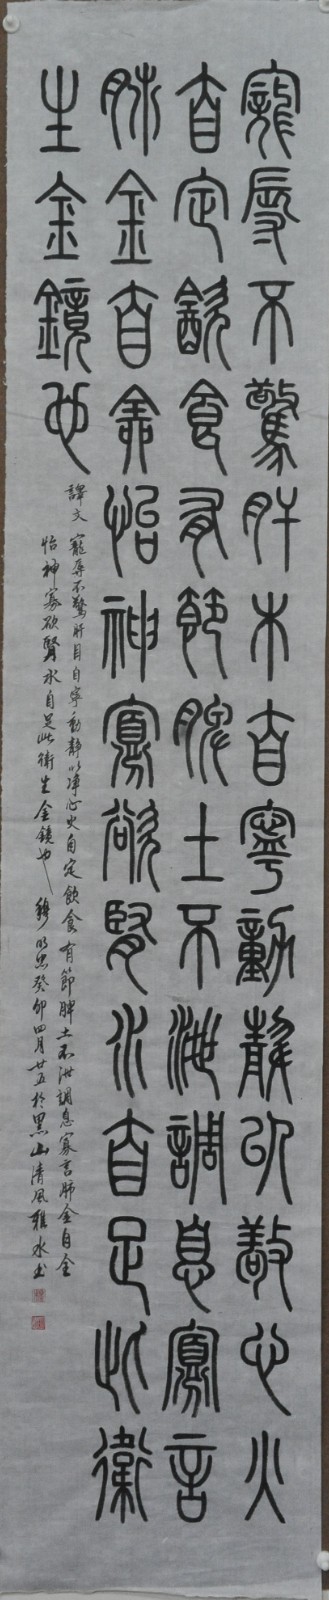 寵辱不驚肝木自寧動靜以敬心火
自定飲食有節脾土不泄調息寡言
肺金自全怡神寡欲腎水自足此衛
生金鏡也
譯文 寵辱不驚肝目自寧動靜以净心火自定飲食有節脾土不泄調息寡言肺金自全
怡神寡欲腎水自足此衛生金鏡也 癸卯四月廿五於黑山清風雅水書